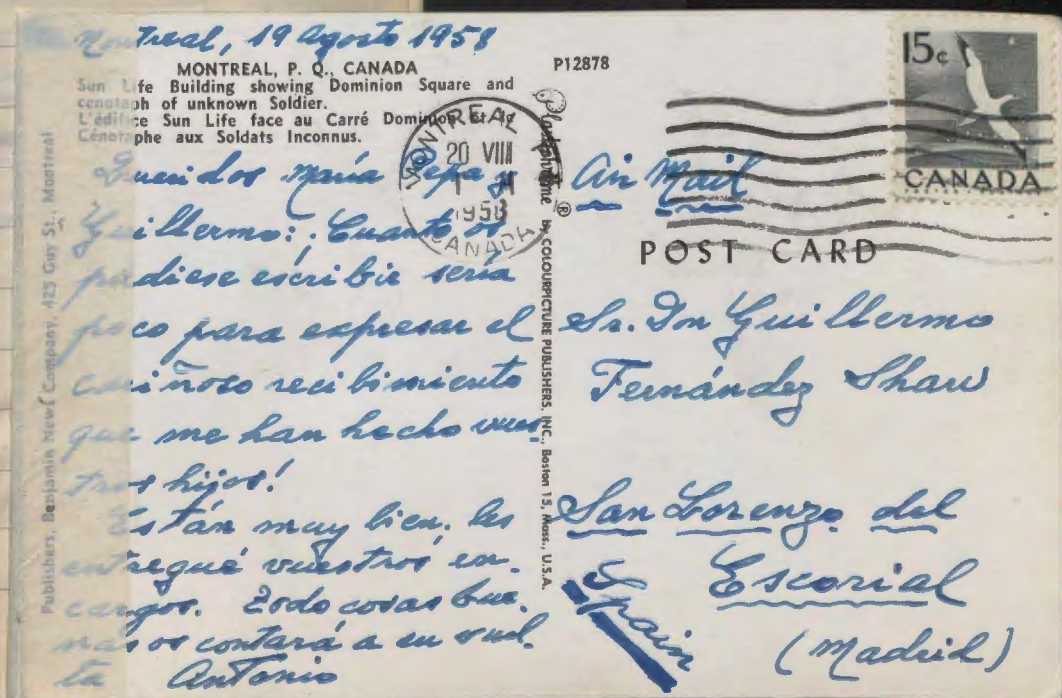 Montreal, 19 agosto 1958
MONTREAL, P. Q., CANADA
Sun Life Building showing Dominion Square and
cenotaph of unknown Soldier.
L'édifice Sun Life face au Carré Dominion et le
Cénotaphe aux Soldats Inconnus.
P12878
Queridos María Pepa y
Guillermo: Cuanto os
pudiese escribir sería
poco para expresar el
cariñoso recibimiento
que me han hecho vues-
tros hijos!
Están muy bien, les
entregué vuestros en-
cargos. Todo cosas bue-
nas os contará a su vuel-
ta Antonio
Publishers, Benjamin News Company, 425 Guy St., Montreal
Plastichrome ® by COLOURPICTURE PUBLISHERS, INC., Boston 15, Mass., U.S.A.
MONTREAL
20 VIII
1958
CANADA
15c
CANADA
Air Mail
POST CARD
Sr. Don Guillermo
Fernández Shaw
San Lorenzo del
Escorial
(Madrid)
Spain